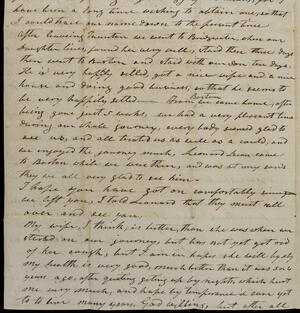 have been a long time wishing to obtain one, so that
I could trace our name down to the present time.
After leaving Taunton we went to Bridgewater, where our
Daughter lives, found her very well, staid there three days
then went to Boston and staid with our Son ten days.
He is very happily settled, got a nice wife and a nice
house and doing good business, so that he seems to
be very happily settled — From Boston we came home, after
being gone just 5 weeks, we had a very pleasant time
during our whole journey, every body seemed glad to
see us, and all treated us as well as a could, and
we enjoyed the journey much, Leonard came
to Boston while we were there, and was at my sons
they are all very glad to see him —
I hope you have got on comfortably since
we left you, I told Leonard that they must call
over and see you.
My wife, I think, is better, than she was when we
started on our journey, but has not yet got rid
of her cough, but I am in hopes she will by & by
my health is very good, much better than it was 3 or 4
years ago, after quiting getting up by nights, which hurt
me very much, and hope by temperance & care yet
to live many years, God willing, but after all